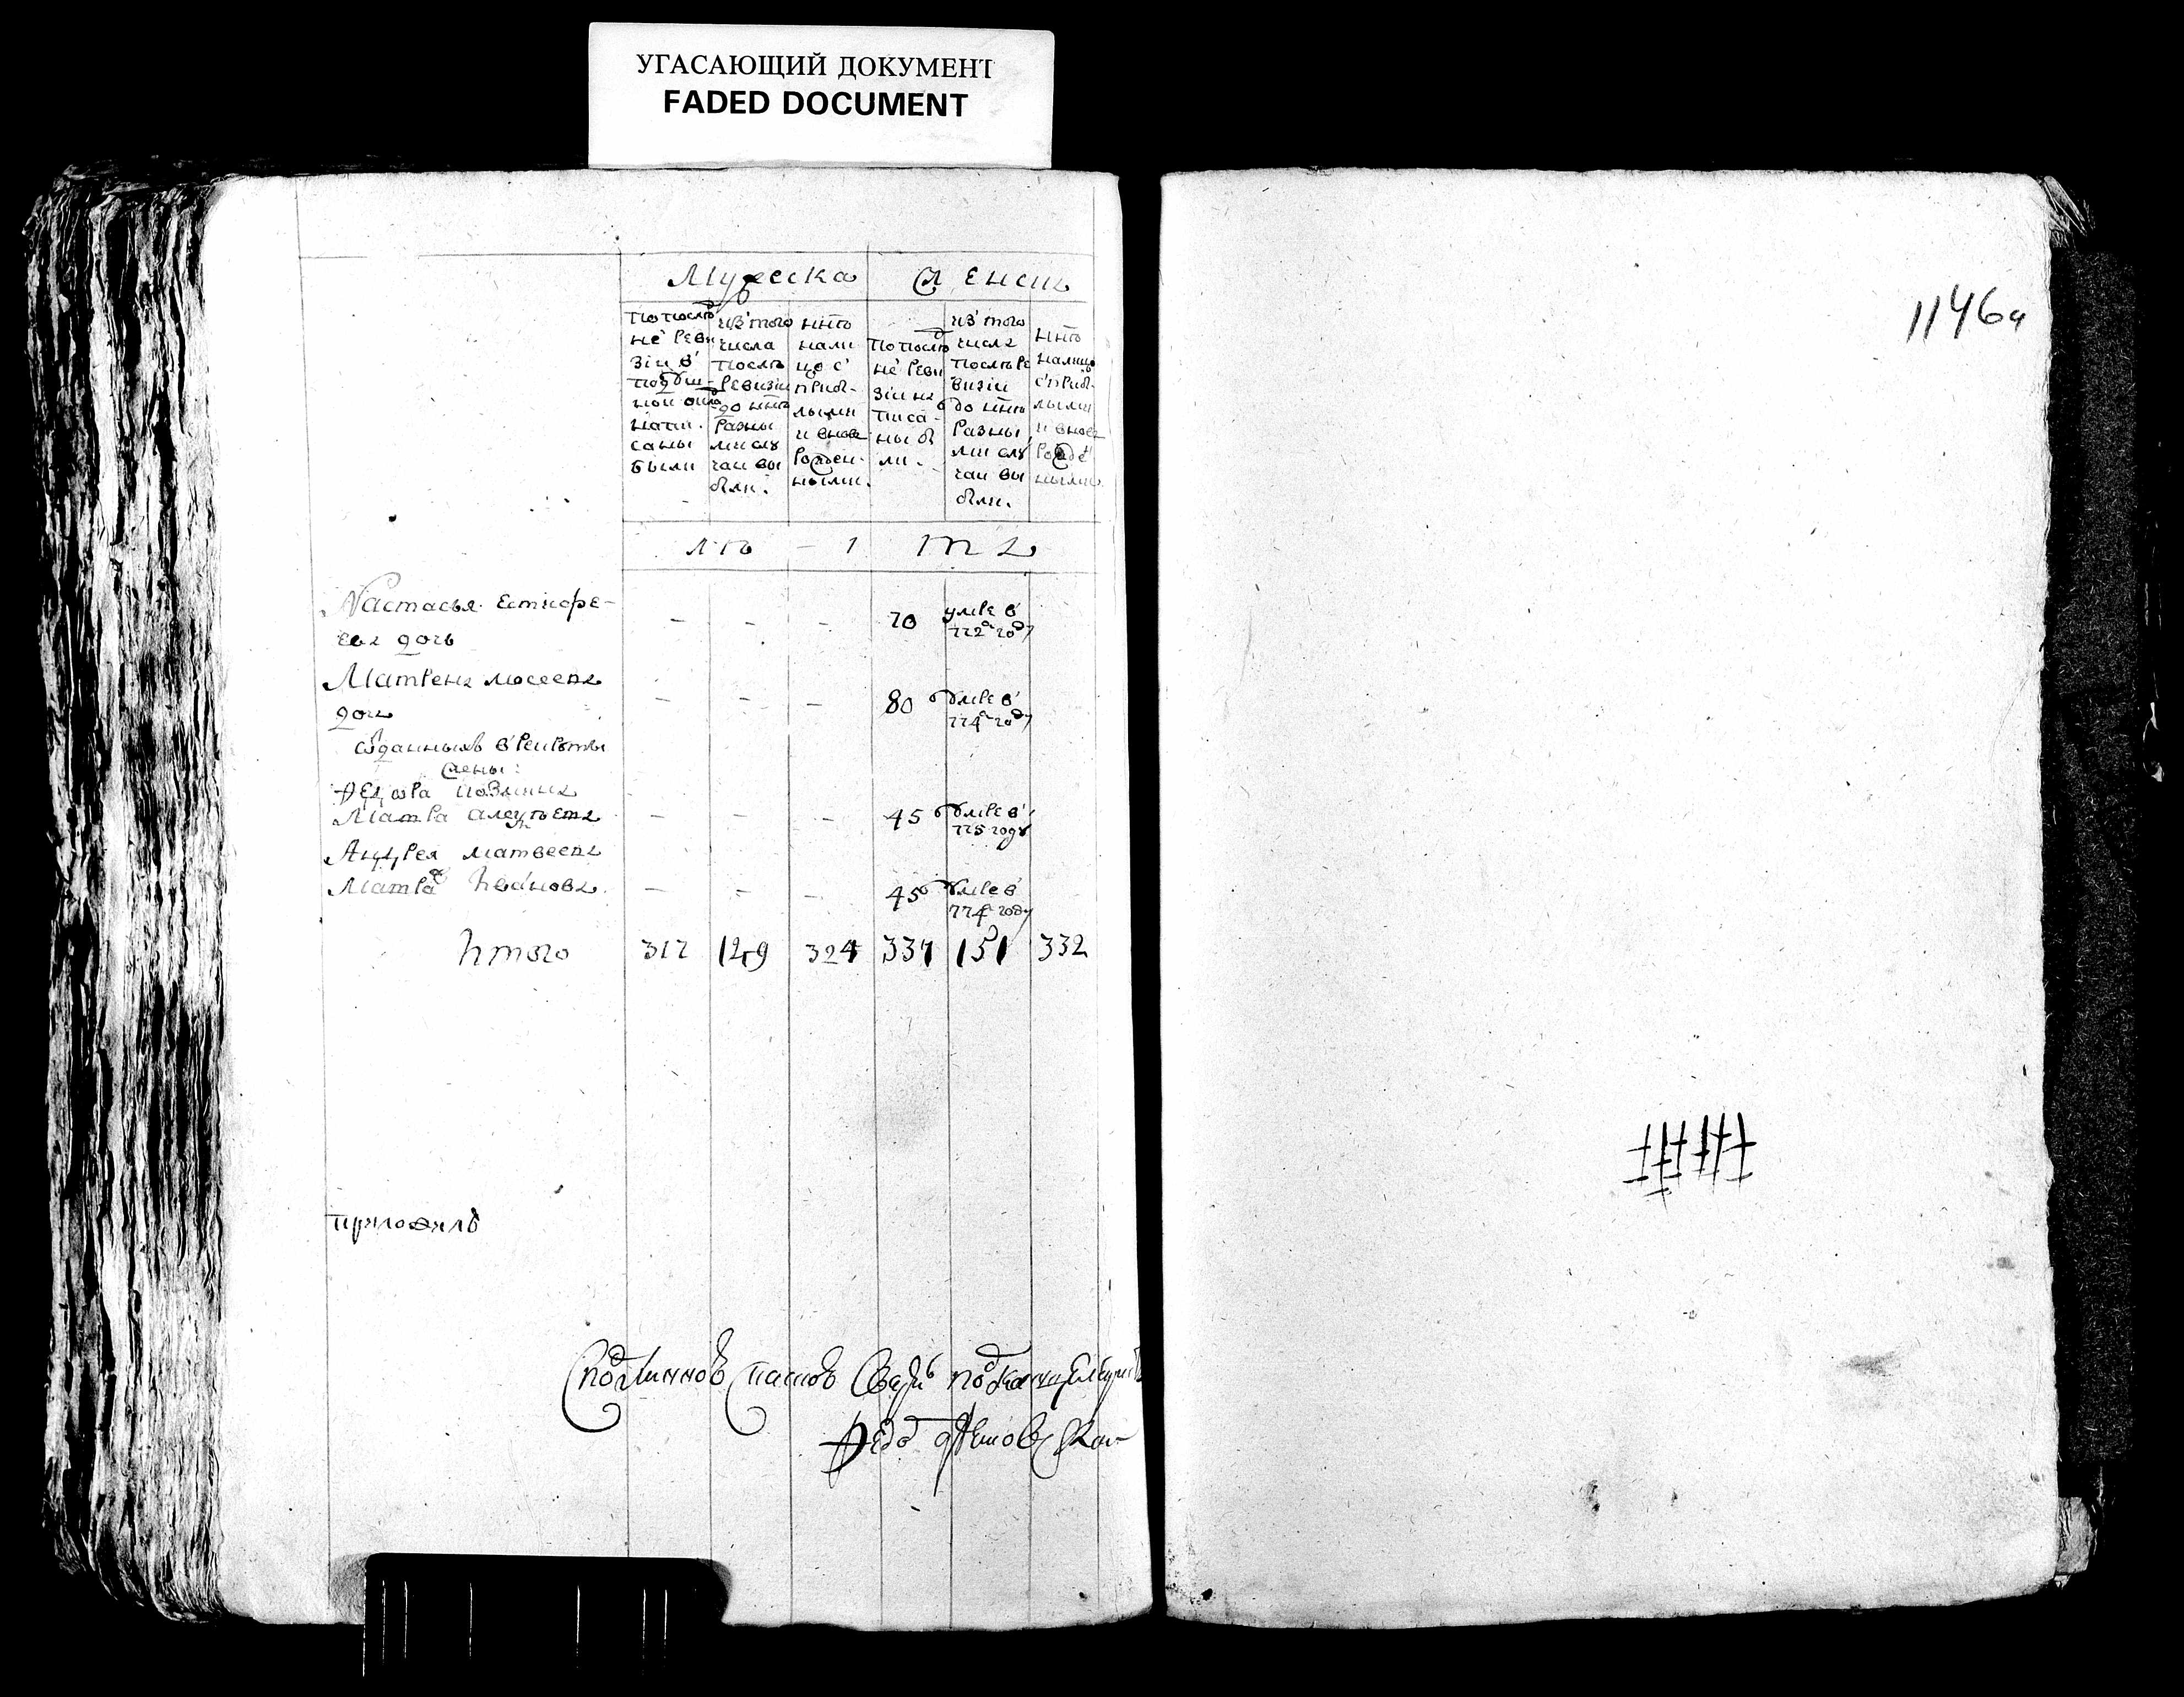 УГАСАЮЩИЙ ДОКУМЕНТ
FADED DOCUMENT
1146а
Мужеска Женска
по послѣд
не ревизіи в подушной оклад написаны были
из того числа после ревизіи до ннѣ разными случаи выбли.
ннѣ налицо с прибылыми и вновь рожденными.
по послѣд
не ревизіи написаны бли.
из того числа после ревизіи до ннѣ разными случаи выбли.
ннѣ налицо с прибылыми и вновь рожденными
лѣ - 1 т а
Настасья Естифе-
ева дочь - - - 70 умре в
772м году
Матрена мосеева
дочь - - - 80 умре в
774м году
отданных в рекруты
жены:
Федора
Матра - - - 45 умре в
775 году
Андрея матвеева
Матра Иванова - - - 45 умре в
774м году
Итого 317 129 324 337 151 332
приложилъ
С подлинного подканцелярист
Федо